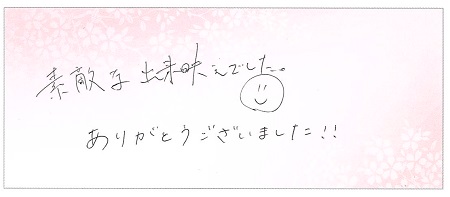 素敵な出来映えでした。
ありがとうございました!!